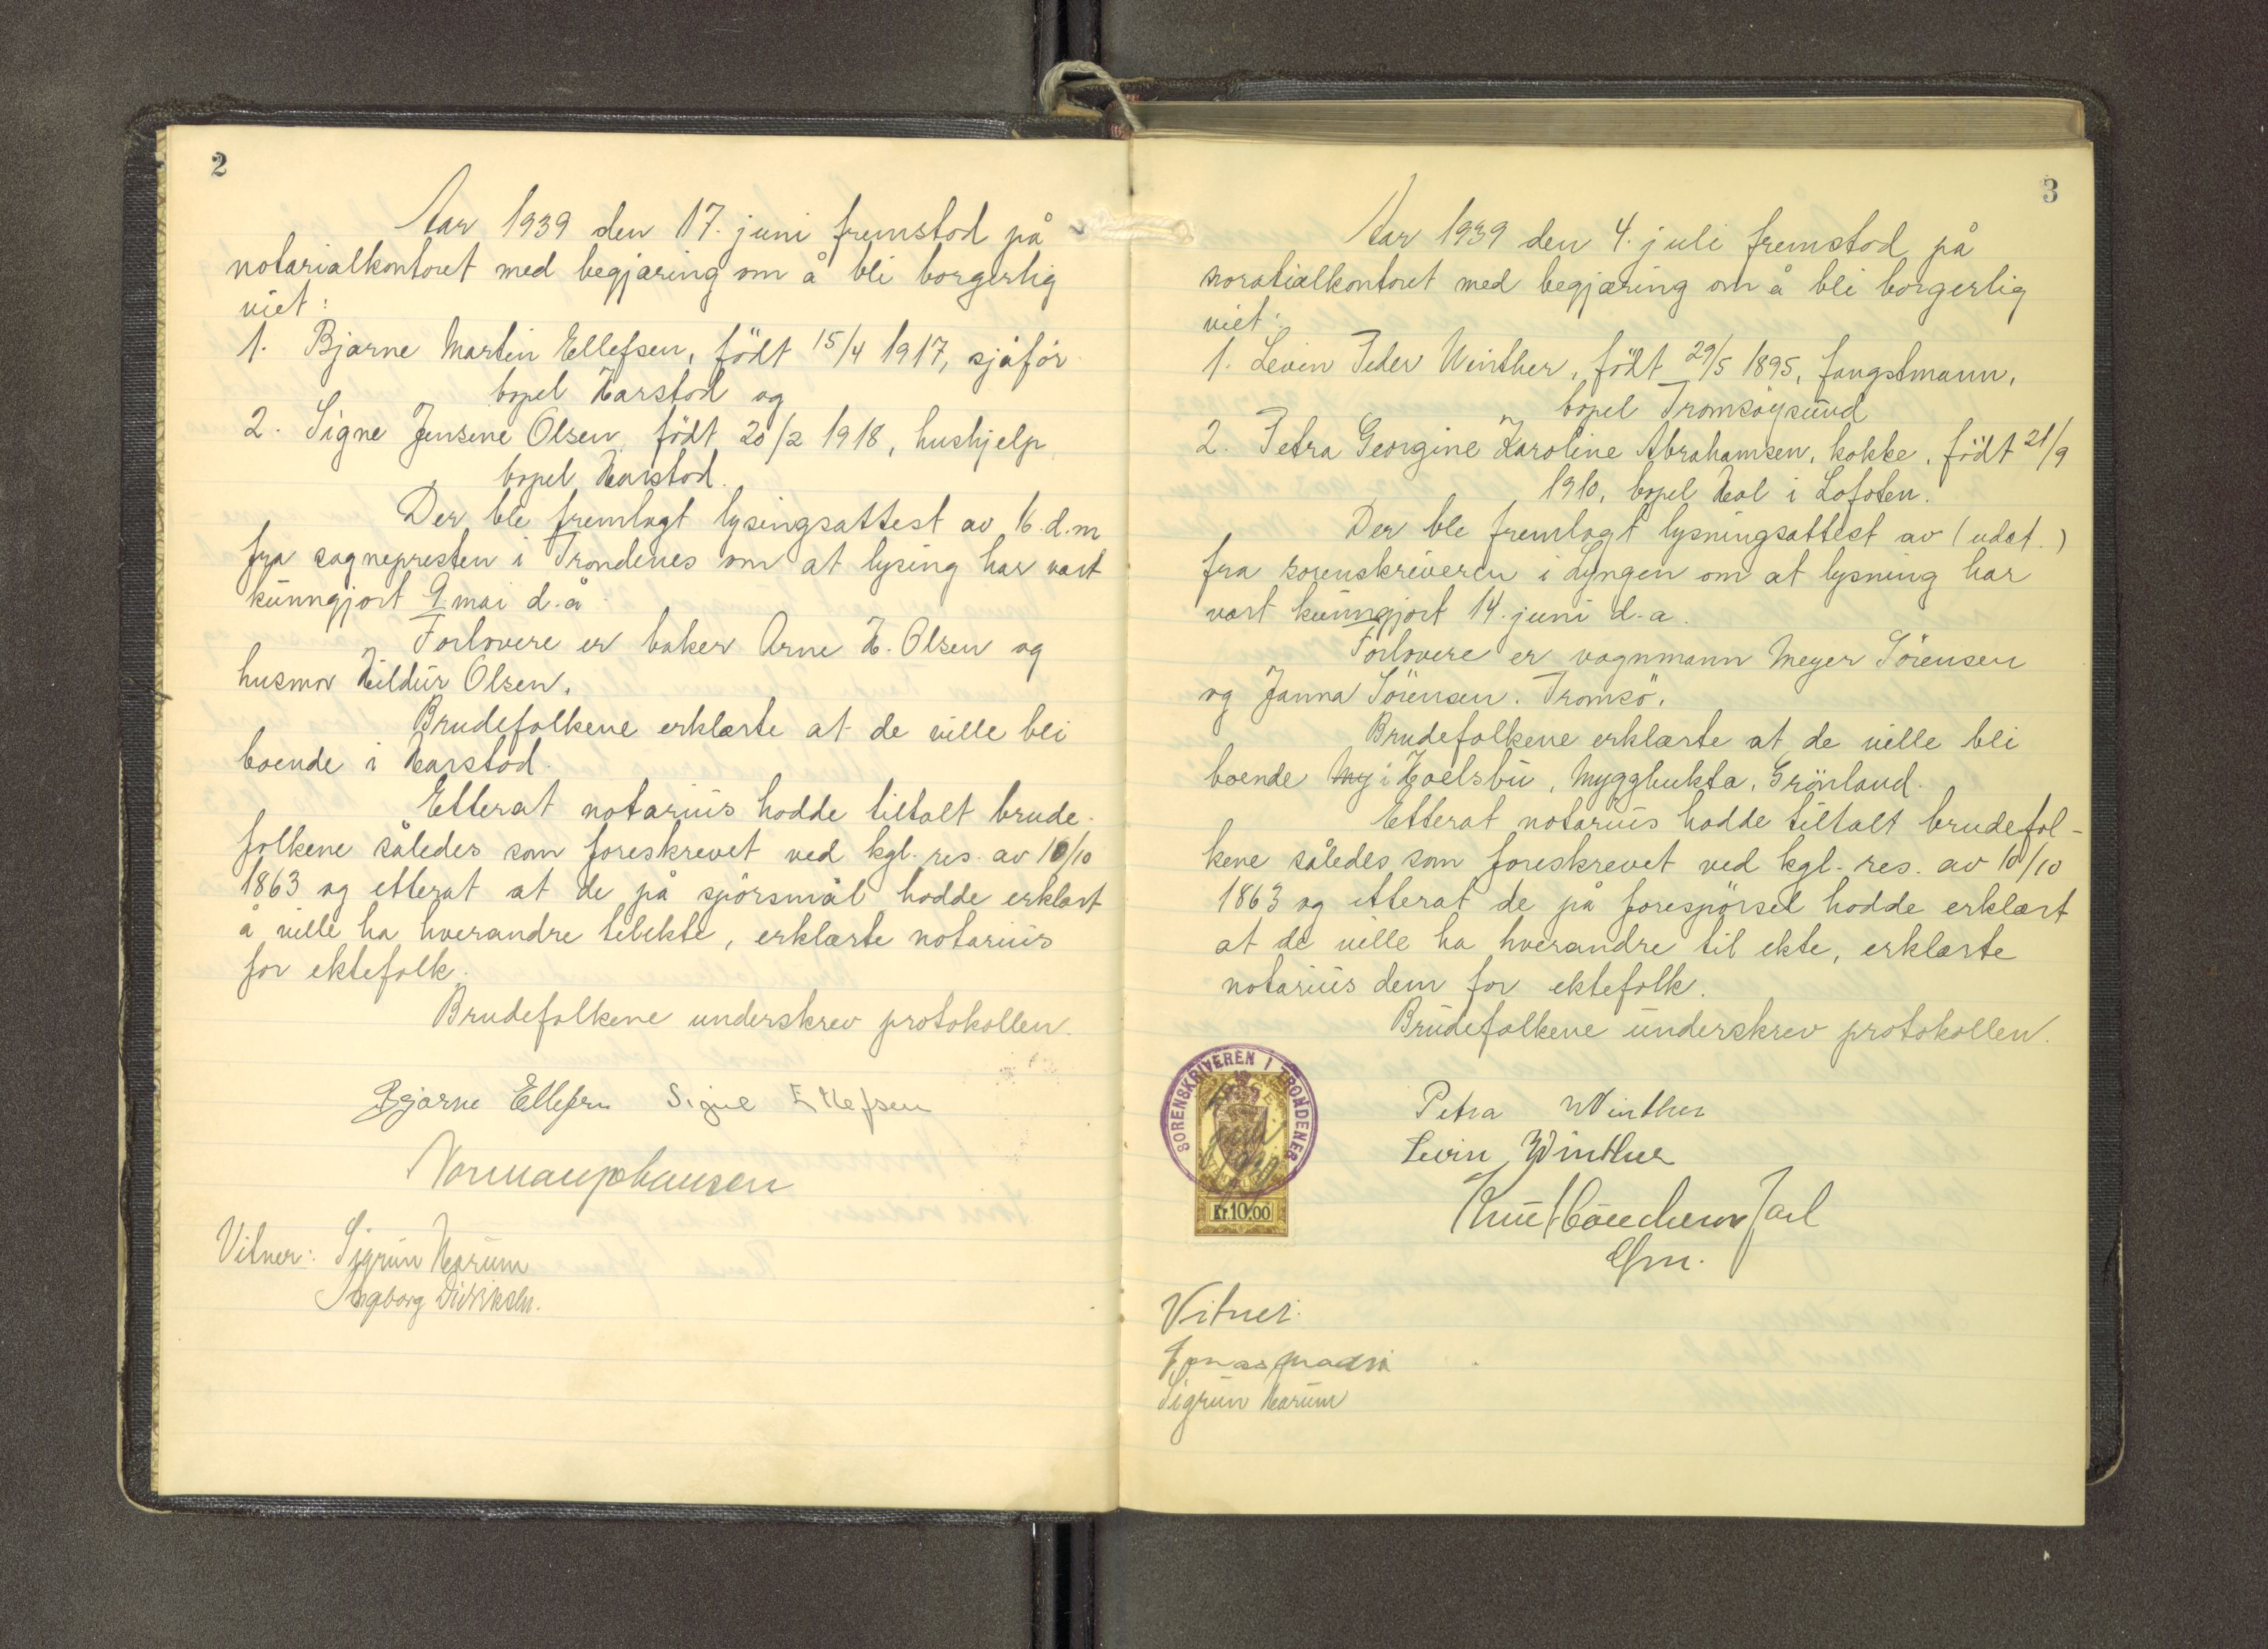 2
Aar 1939 den 17. juni fremstod på
notarialkontoret med begjæring om å bli borgerlig
viet:
1. Bjarne Martin Ellefsen, født 15/4 1917, sjåfør
bopel Harstad og
2. Signe Jensene Olsen, født 20/2 1918, hushjelp
bopel Harstad.
Der ble fremlagt lysingsattest av 16. d.m
fra sognepresten i Trondenes om at lysing har vært
kunngjort 9 mai d.å.
Forlovere er baker Arne H. Olsen og
husmor Hildur Olsen.
Brudefolkene erklærte at de ville bli
boende i Harstad.
Etterat notarius hadde tiltalt brude-
folkene således som foreskrevet ved kgl. res. av 10/10
1863 og etterat at de på spörsmål hadde erklært
å ville ha hverandre tilekte, erklærte notarius
for ektefolk.
Brudefolkene underskrev protokollen.
Bjarne Ellefsen Signe Ellefsen
Vitner: Sigrun Harum
Ingborg Didriksen.
3
Aar 1939 den 4. juli fremstod på
noratialkontoret med begjæring om å bli borgerlig
viet:
1. Levin Peder Winther, født 29/5 1895, fangstmann,
bopel Tromsöysund
2. Petra Georgine Karoline Abrahamsen, kokke, født 21/9
1910, bopel Hol i Lofoten.
Der ble fremlagt lysningsattest av (udat.)
fra sorenskriveren i Lyngen om at lysning har
vært kunngjort 14. juni d.a.
Forlovere er vognmann Meyer Sörensen
og Janna Sörensen. Tromsö.
Brudefolkene erklærte at de ville bli
boende My i Hoelsbu, Myggbukta, Grönland.
Etterat notarius hadde tiltalt brudefol-
kene således som foreskrevet ved kgl. res. av 10/10
1863 og etterat de på forespörsel hadde erklært
at de ville ha hverandre til ekte, erklærte
notarius dem for ektefolk.
Brudefolkene underskrev protokollen.
SORENSKRIVEREN I TRONDENES
Kr. 10.00
Petra Winther
Levin Winther
Vitner:
Sigrun Harum